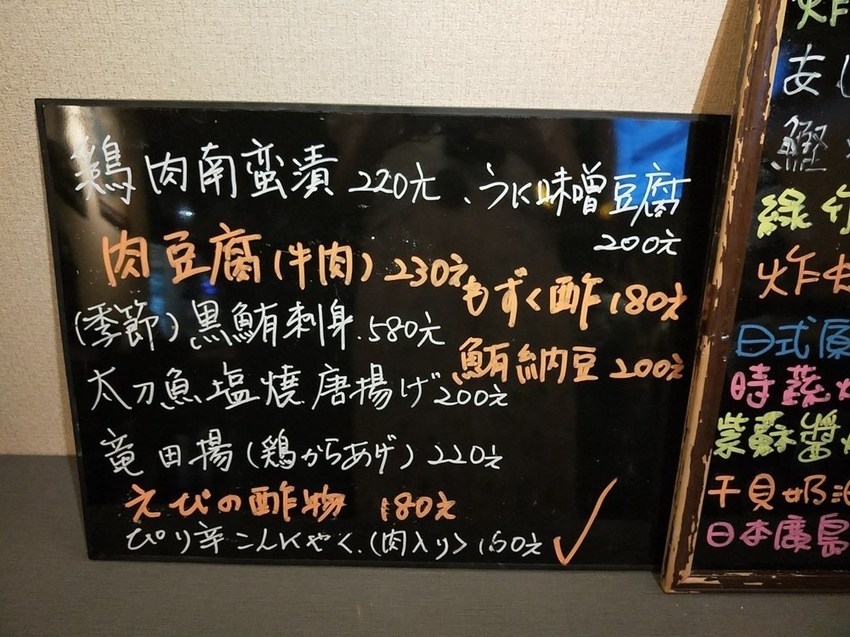 鶏肉南蛮漬 220元、うに味噌豆腐
200元
肉豆腐(牛肉)230元
もずく酢 180元
(季節)黒鮪刺身.580元
鮪納豆 200元
太刀魚塩焼.唐揚げ200元
竜田揚(鶏からあげ)220元
えびの酢物 180元
ぴり辛こんにゃく.(肉入り)160元
炸
あ
鰹
綠竹
炸
日式
時蔬
紫蘇醬
干貝奶油
日本廣島